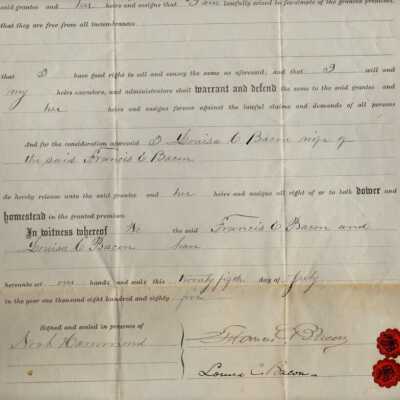 said grantee and her heirs and assigns that I am lawfully seized in fee-simple of the granted premises,
that they are free from all incumbrances
that I have good right to sell and convey the same as aforesaid; and that I will and
my heirs executors, and administrators shall warrant and defend the same to the said grantee and
her heirs and assigns forever against the lawful claims and demands of all persons
And for the consideration aforesaid I Louisa C Bacon wife of
the said Francis C Bacon
do hereby release unto the said grantee and her heirs and assigns all right of or to both dower and
homestead in the granted premises
In witness whereof We the said Francis C Bacon and
Louisa C Bacon have
hereunto set our hands and seals this twenty fifth day of July
in the year one thousand eight hundred and eighty five
Signed and sealed in presence of
Noah Hammond
Francis C Bacon
Louisa C. Bacon